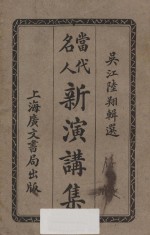 吳江陸翔輯選
當代名人
新演講集
上海廣文書局出版